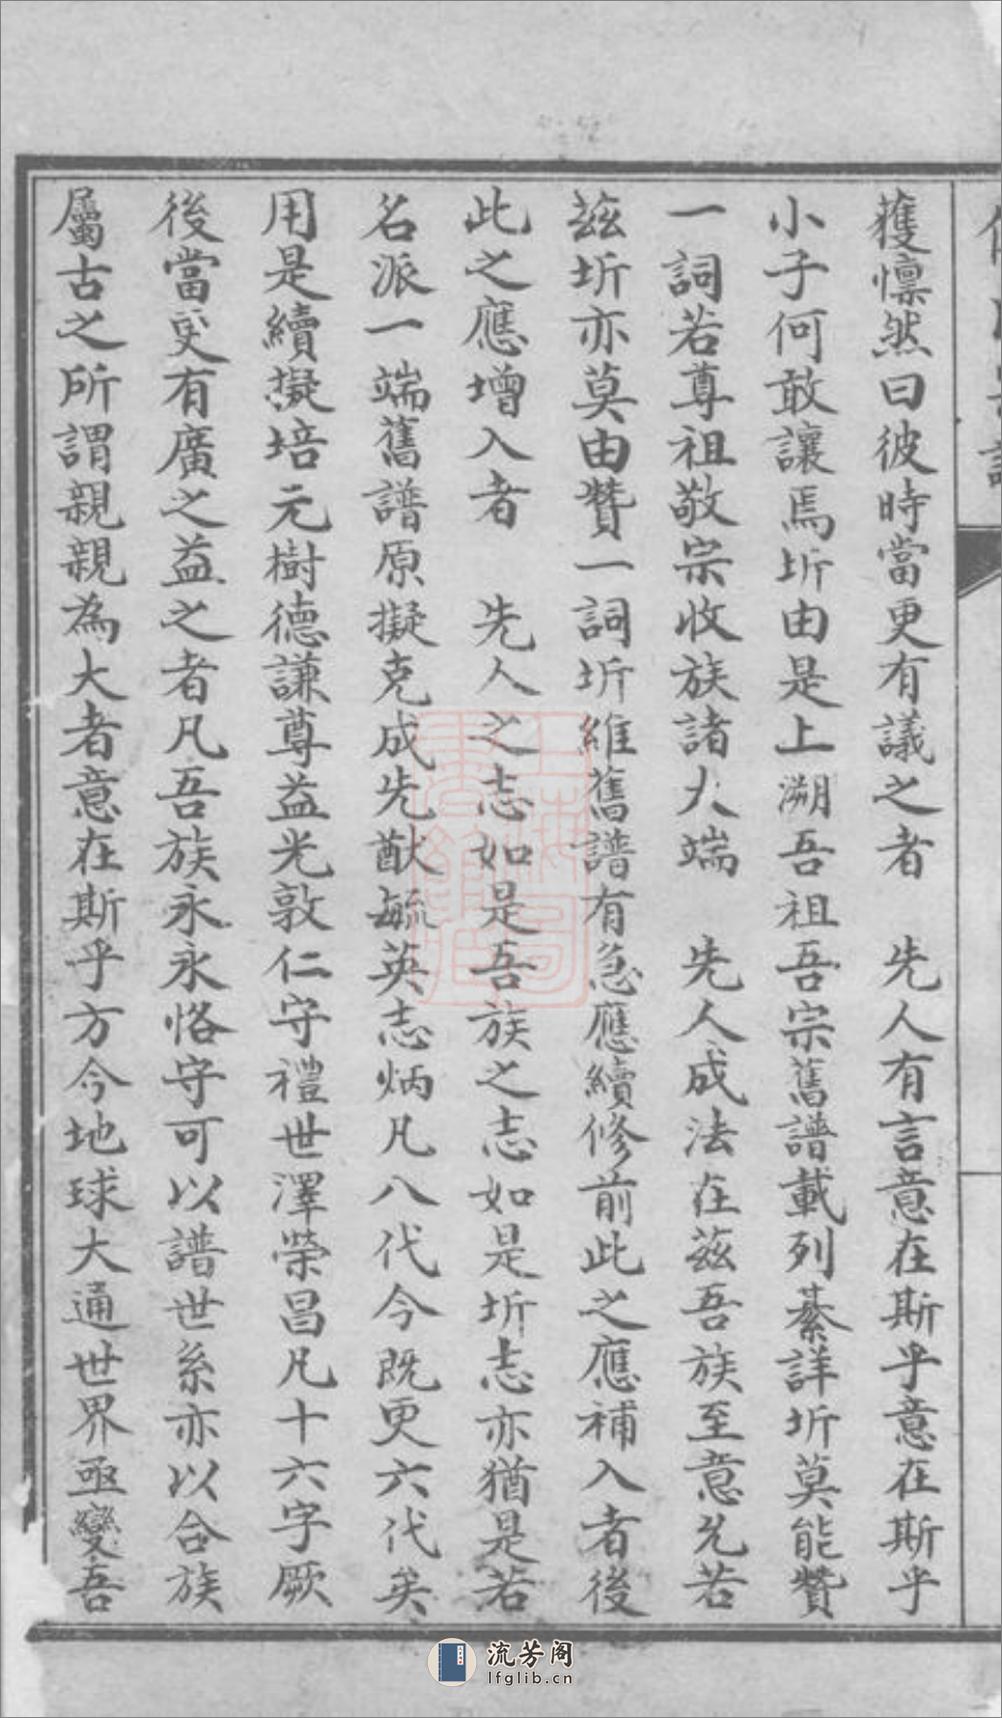 獲懍然曰彼時當更有議之者　先人有言意在斯乎意在斯乎
小子何敢讓焉圻由是上溯吾祖吾宗舊譜載列綦詳圻莫能贊
一詞若尊祖敬宗收族諸大端　先人成法在茲吾族至意允若
茲圻亦莫由贊一詞圻維舊譜有急應續修前此之應補入者後
此之應增入者　先人之志如是吾族之志如是圻志亦猶是若
名派一端舊譜原擬克成先猷毓英志炳凡八代今既更六代矣
用是續擬培元樹德謙尊益光敦仁守禮世澤榮昌凡十六字厥
後當更有廣之益之者凡吾族永永恪守可以譜世系亦以合族
屬古之所謂親親為大者意在斯乎方今地球大通世界亟變吾
流芳阁
lfglib.cn